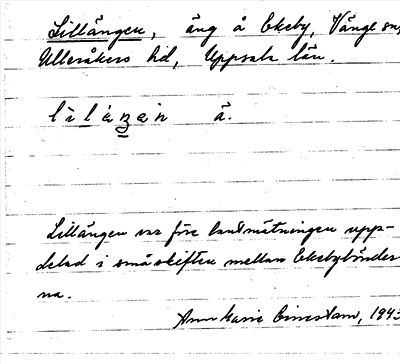 Lillängen, äng å Ekeby, Vänge sn,
Ulleråkers hd, Uppsala län.
Lillängen var före landmätningen upp-
delad i småskiften mellan Ekebybönder-
na.
Ann Marie 1943